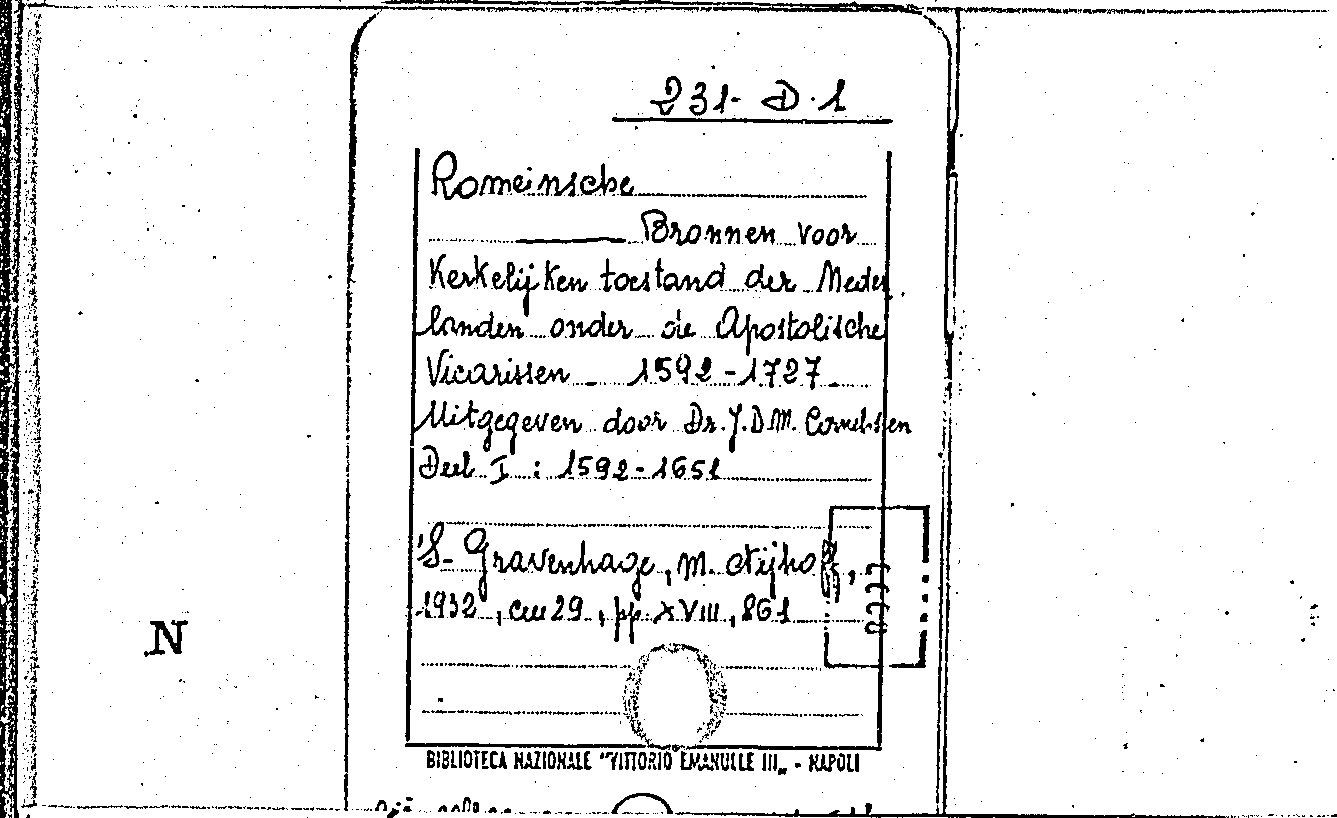 231- D. 1
Romeinsche
Bronnen voor
Kerkelijken toestand der Neder
landen onder de Apostolische
Vicarissen - 1592-1727
Uitgegeven door Dr. J.D.M. Cornelissen
Deel I : 1592-1651
'S- Gravenhage, M. Nijhoff,
1932, cm 29, pp. XVIII, 861
N
BIBLIOTECA NAZIONALE "VITTORIO EMANUELE III„ - NAPOLI